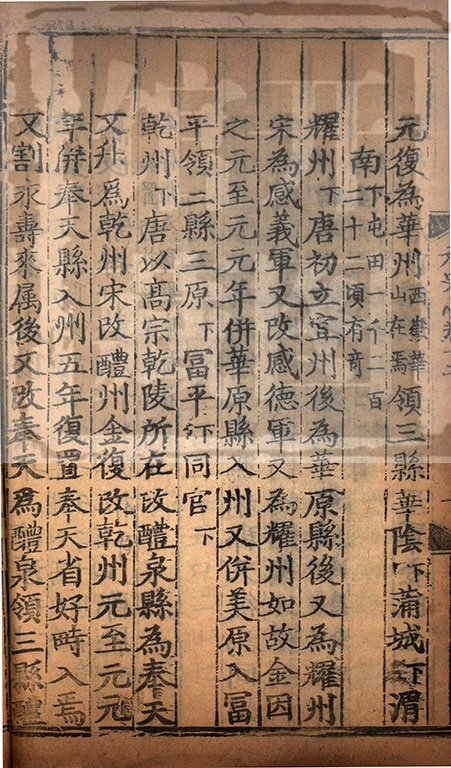 元復為華州西嶽華山在焉領三縣華陰下蒲城下渭
南下屯田一千二百二十二頃有奇
耀州下唐初立宜州後為華原縣後又為耀州
宋為感義軍又改感德軍又為耀州如故金因
之元至元元年併華原縣入州又併美原入冨
平領二縣三原下冨平下同官下
乾州下唐以高宗乾陵所在改醴泉縣為奉天
又升為乾州宋改醴州金復改乾州元至元元
年併奉天縣入州五年復置奉天省好畤入焉
又割永壽來属後又改奉天為醴泉領三縣醴